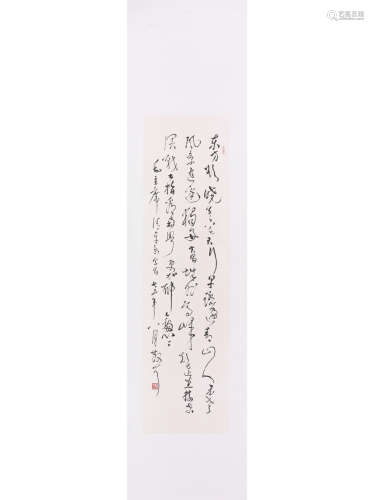 东方欲晓莫道君行早踏遍青山人未老
风景这边独好会昌城外高峰颠连直接东
溟战士指看南粤更加郁々葱々
毛主席清平乐会昌 七五年
八月